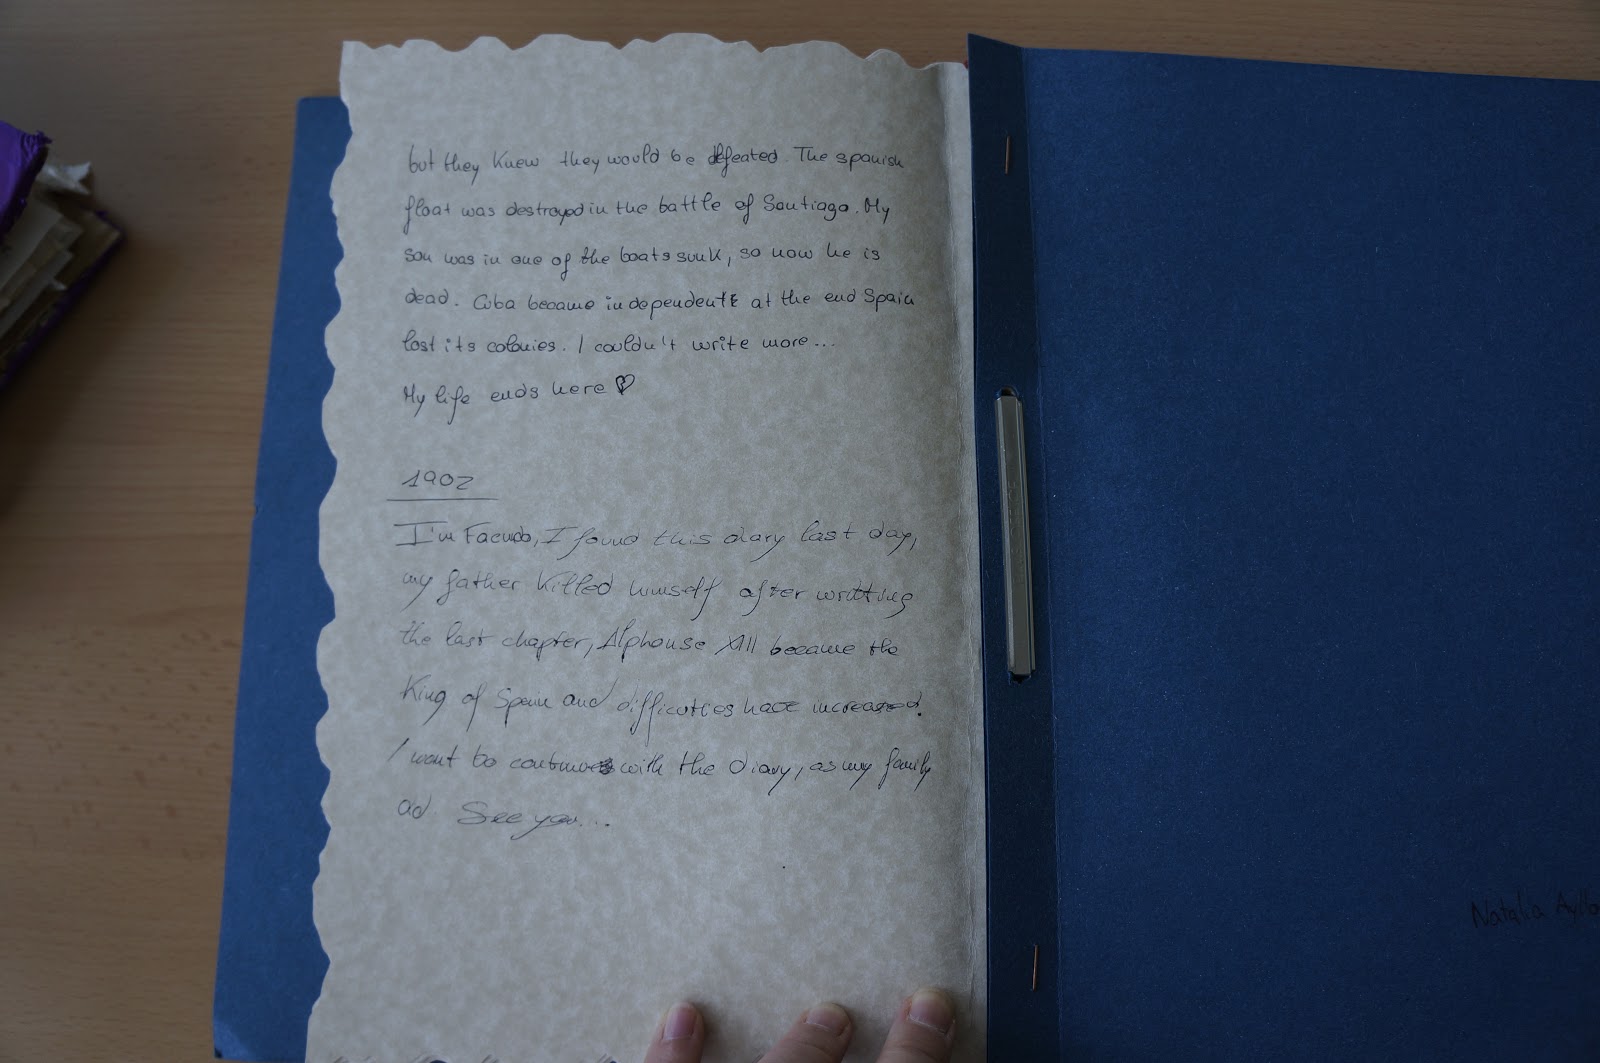 but they knew they would be defeated. The spanish
float was destroyed in the battle of Santiago. My
son was in one of the boats sunk, so now he is
dead. Cuba became independent at the end Spain
lost its colonies. I couldn't write more...
My life ends here ♡
1902
I'm Facundo, I found this diary last day,
my father killed himself after writting
the last chapter, Alphonse XIII became the
King of Spain and difficulties have increased.
I want to continue with the diary, as my family
ad. See you...
Natalia Ayllo